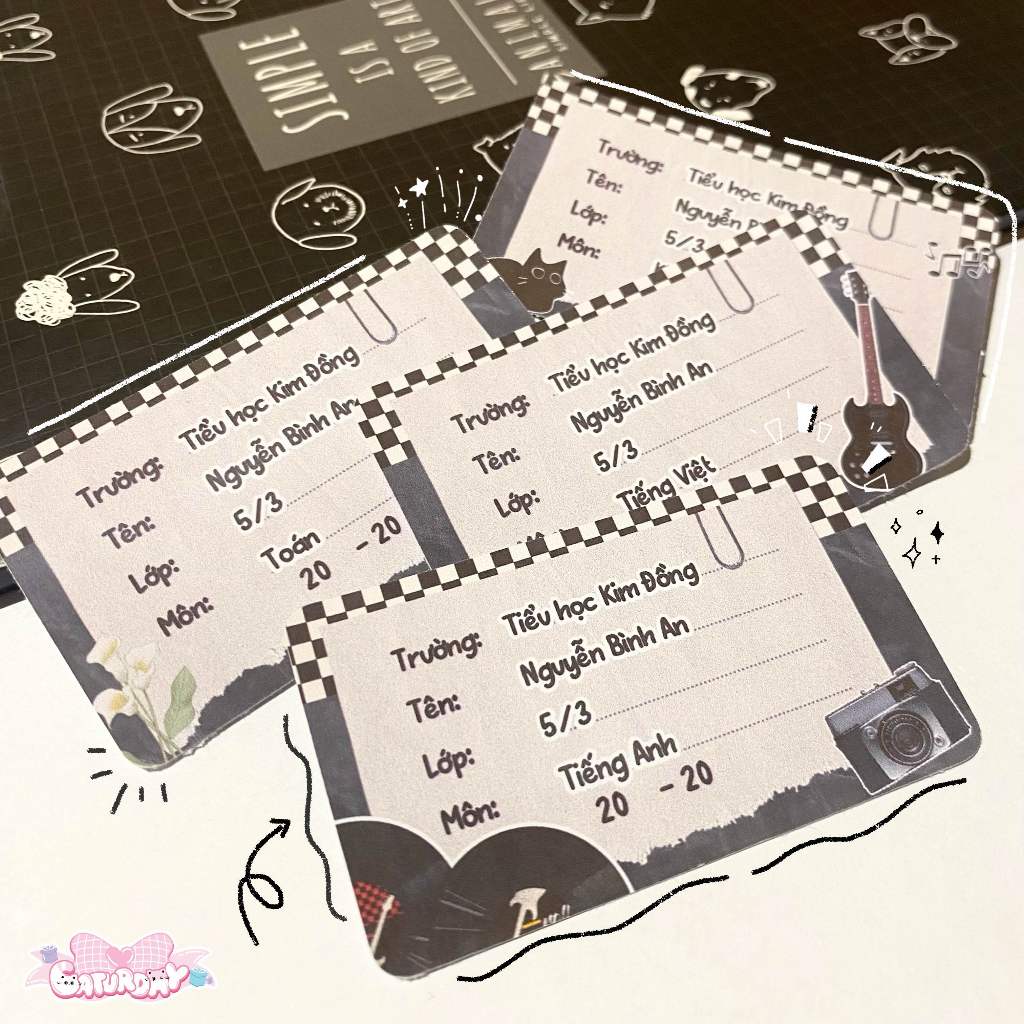 SIMPLE
IS A
KIND OF ART
ANIMAL
Trường: Tiểu học Kim Đồng
Tên: Nguyễn
Lớp: 5/3
Môn:
Trường: Tiểu học Kim Đồng
Tên: Nguyễn Bình An
Lớp: 5/3
Môn: Toán
20 - 20
Trường: Tiểu học Kim Đồng
Tên: Nguyễn Bình An
Lớp: 5/3
Tiếng Việt
Trường: Tiểu học Kim Đồng
Tên: Nguyễn Bình An
Lớp: 5/3
Môn: Tiếng Anh
20 - 20
CATURDAY